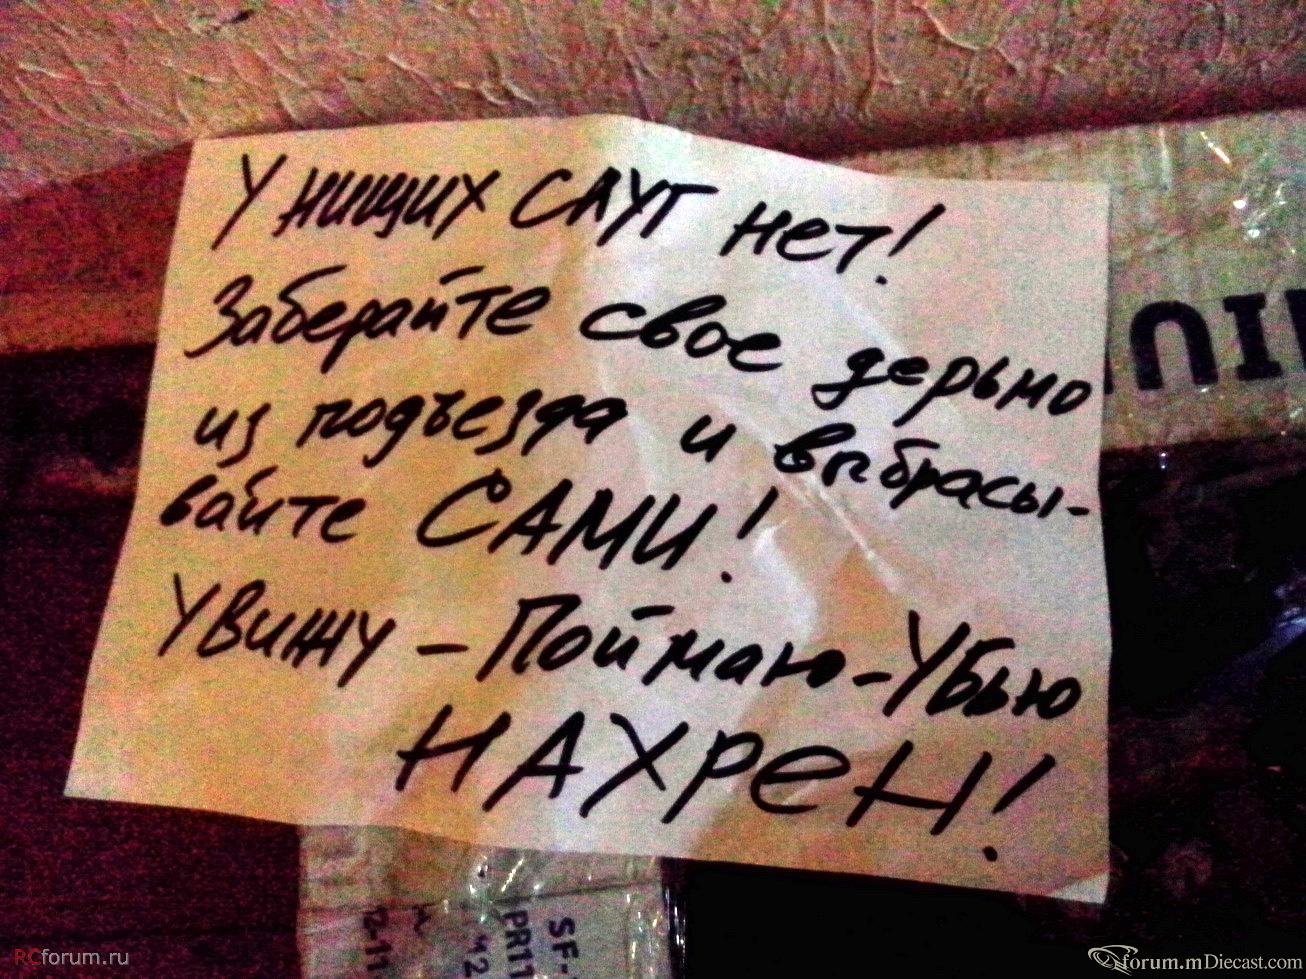 У нищих САУГ нет!
Заберайте свое дерьмо
из подъезда и выбрасы-
вайте САМИ!
Увижу - Поймаю - Убью
НАХРЕН!
SF-
PR11
42
12-11
RCforum.ru
forum.mDiecast.com